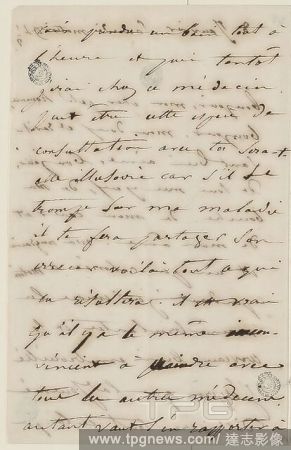 prendre un bain tout à
l'heure et puis tantôt
j'irai chez ce médecin.
Peut être cette espèce de
consultation avec toi sera-t-
elle illusoire car s'il se
trompe sur ma maladie
il te fera partager son
erreur voilà tout ce qui
en résultera. Il est vrai
qu'il y a le même incon-
vénient à prendre avec
tout les autres médecins
autant vaut s'en rapporter à
TPG
www.tpgnews.com / 達志影像